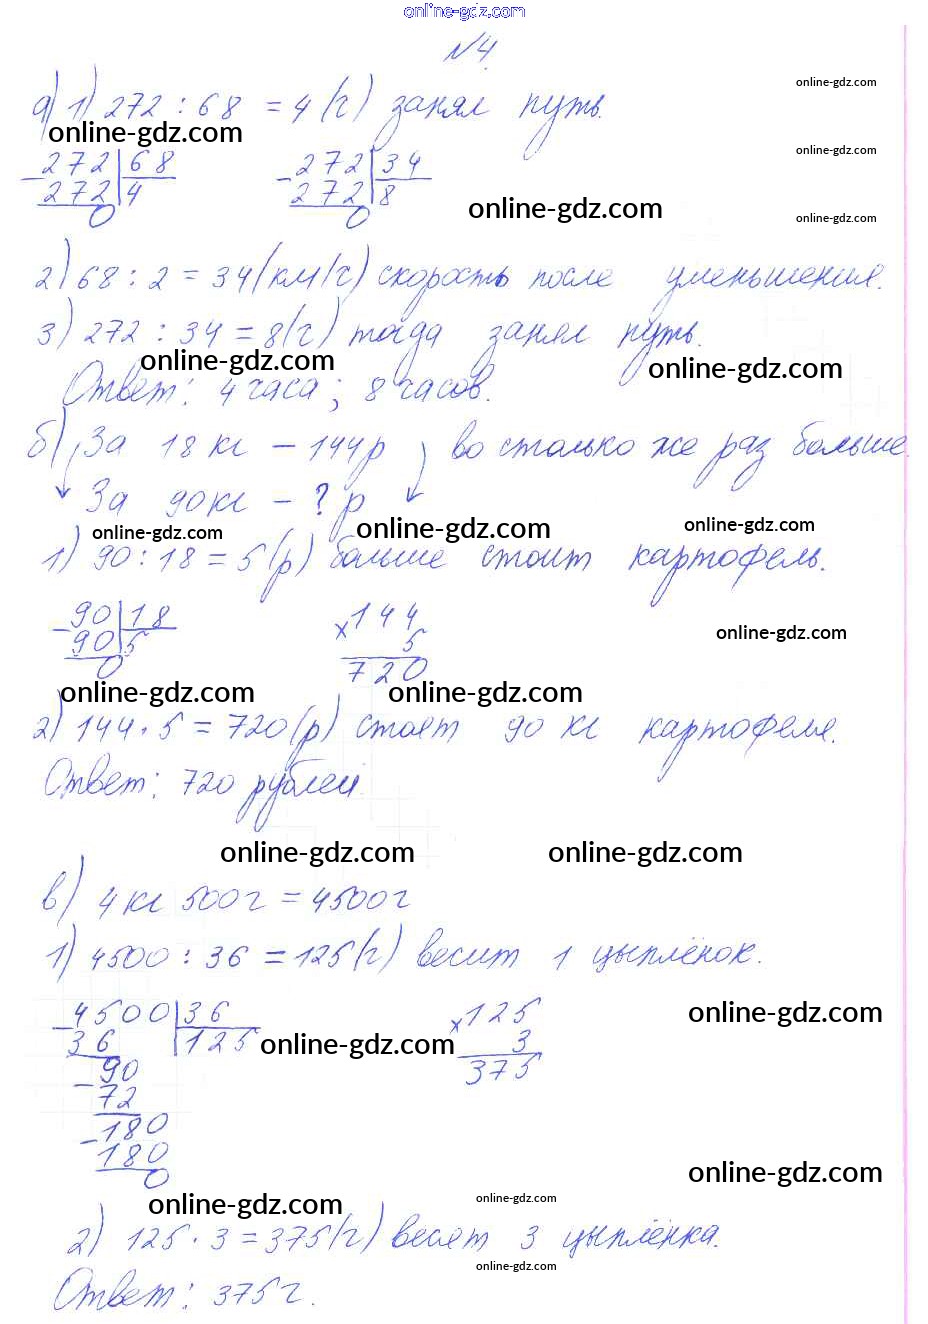 online-gdz.com
№4.
online-gdz.com
а) 1) 272 : 68 = 4 (ч) занял путь.
online-gdz.com
272 68 272 34
272 4 272 8
0 0
online-gdz.com
online-gdz.com
online-gdz.com
2) 68 : 2 = 34 (км/ч) скорость после уменьшения.
3) 272 : 34 = 8 (ч) тогда занял путь.
online-gdz.com
online-gdz.com
Ответ: 4 часа; 8 часов.
б) За 18 кг – 144 р во столько же раз больше.
За 90 кг – ? р
online-gdz.com
online-gdz.com
online-gdz.com
1) 90 : 18 = 5 (р) больше стоит картофель.
90 18 144
90 5 × 5
0 720
online-gdz.com
online-gdz.com
online-gdz.com
2) 144 · 5 = 720 (р) стоят 90 кг картофеля.
Ответ: 720 рублей.
online-gdz.com
online-gdz.com
в) 4 кг 500 г = 4500 г
1) 4500 : 36 = 125 (г) весит 1 цыплёнок.
4500 36 125
36 125 × 3
90 375
72
180
180
0
online-gdz.com
online-gdz.com
online-gdz.com
online-gdz.com
online-gdz.com
2) 125 · 3 = 375 (г) весят 3 цыплёнка.
online-gdz.com
Ответ: 375 г.